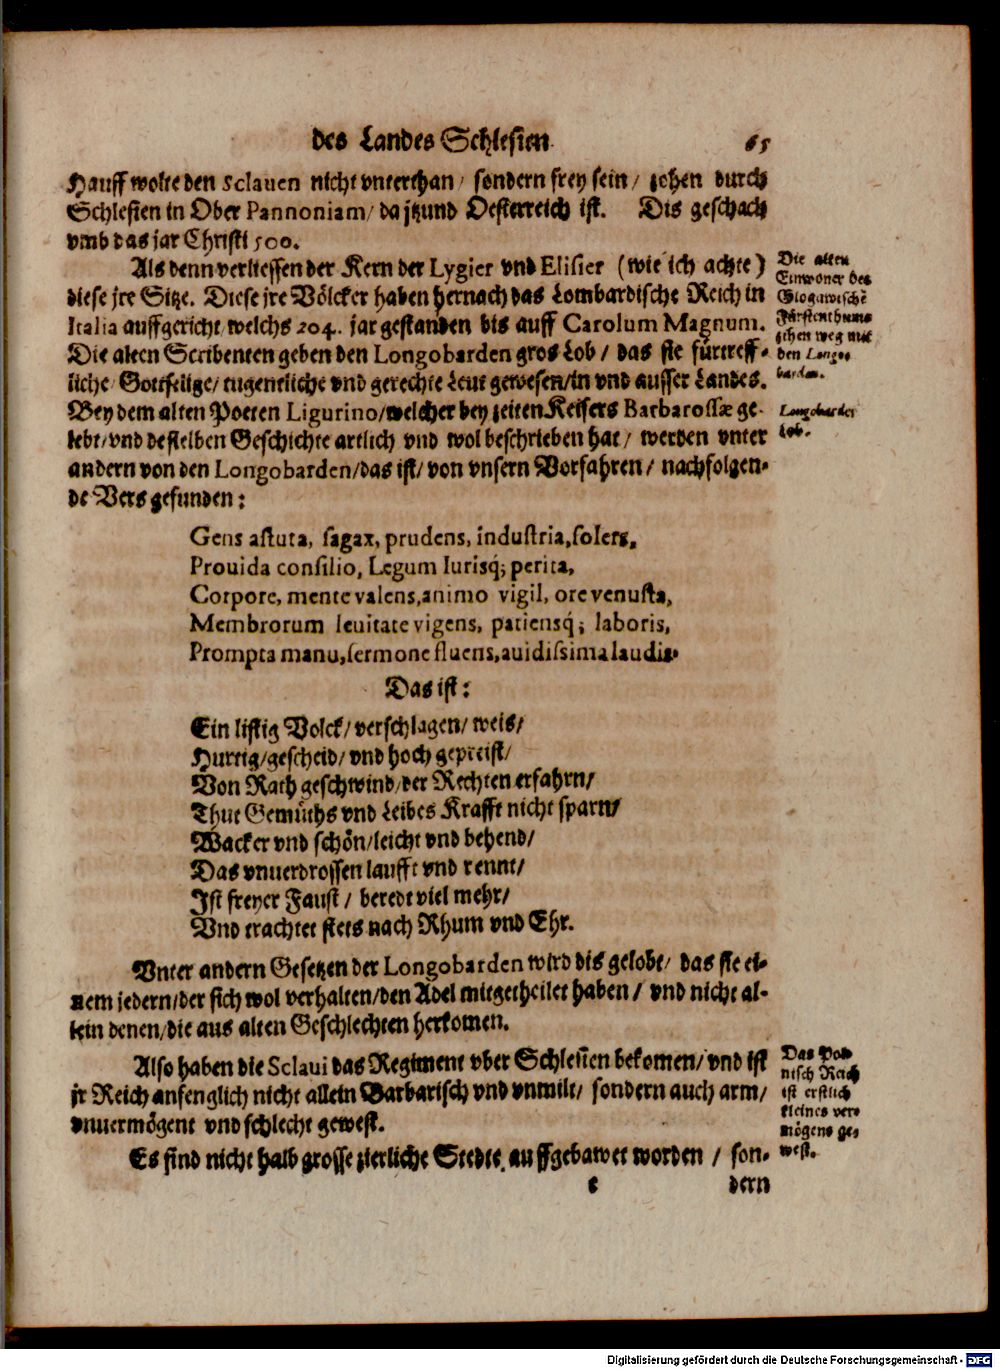 des Landes Schlesien. 65
Hauff wolte den Sclauen nicht vnterthan/ sondern frey sein/ zohen durch
Schlesien in Ober Pannoniam/ da jtzund Oesterreich ist. Dis geschach
vmb das jar Christi 500.
Als denn verliessen der Kern der Lygier vnd Elisier (wie ich achte)
diese jre Sitze. Diese jre Völcker haben hernach das Lombardische Reich in
Italia auffgericht/ welchs 204. jar gestanden bis auff Carolum Magnum.
Die alten Scribenten geben den Longobarden gros Lob/ das sie fürtreff-
liche/ Gottselige/ tugentliche vnd gerechte Leut gewesen/ in vnd ausser Landes.
Bey dem alten Poeten Ligurino/ welcher bey zeiten Keisers Barbarossæ ge-
lebt/ vnd desselben Geschichte artlich vnd wol beschrieben hat/ werden vnter
andern von den Longobarden/ das ist/ von vnsern Vorfahren/ nachfolgen-
de Vers gefunden:
Die alten
Einwoner des
Glogawischẽ
Fürstenthums
zihen weg mit
den Longo-
barden.
Longobarder
Lob.
Gens astuta, sagax, prudens, industria, solers,
Prouida consilio, Legum Iurisq́; perita,
Corpore, mente valens, animo vigil, ore venusta,
Membrorum leuitate vigens, patiensq́; laboris,
Prompta manu, sermone fluens, auidissima laudis.
Das ist:
Ein listig Volck/ verschlagen/ weis/
Hurtig/ gescheid/ vnd hoch gepreist/
Von Rath geschwind/ der Rechten erfahrn/
Thut Gemüths vnd Leibes Krafft nicht sparn/
Wacker vnd schön/ leicht vnd behend/
Das vnuerdrossen laufft vnd rennt/
Ist freyer Faust/ beredt viel mehr/
Vnd trachtet stets nach Rhum vnd Ehr.
Vnter andern Gesetzen der Longobarden wird dis gelobt/ das sie ei-
nem jedern/ der sich wol verhalten/ den Adel mitgetheilet haben/ vnd nicht al-
lein denen/ die aus alten Geschlechten herkomen.
Also haben die Sclaui das Regiment vber Schlesien bekomen/ vnd ist
jr Reich anfenglich nicht allein Barbarisch vnd vnmilt/ sondern auch arm/
vnuermögent vnd schlecht gewest.
Das Pol-
nisch Reich
ist erstlich
kleines ver-
mögens ge-
west.
Es sind nicht halb grosse zierliche Stedte auffgebawet worden/ son-
e dern
Digitalisierung gefördert durch die Deutsche Forschungsgemeinschaft - DFG